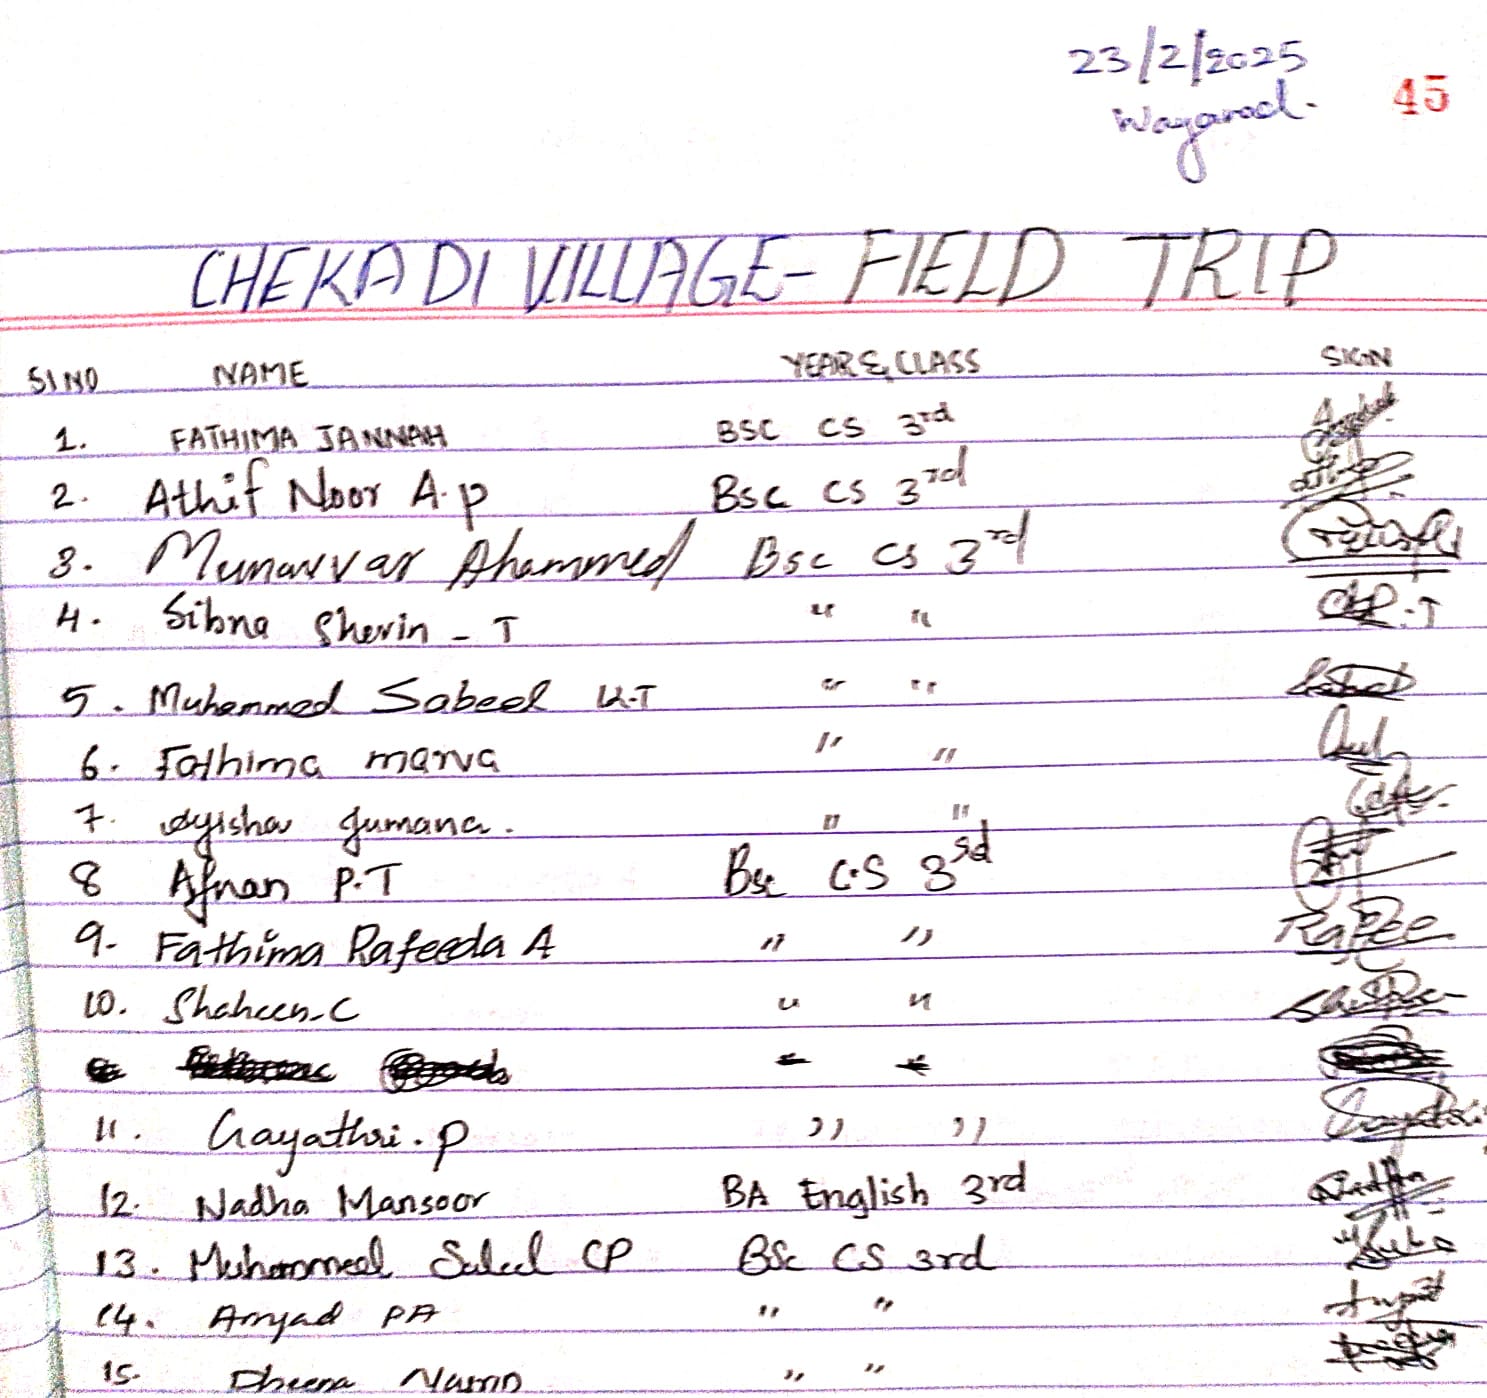 23/2/2025
Wayanad.
45
CHEKADI VILLAGE- FIELD TRIP
SI NO NAME YEAR & CLASS SIGN
1. FATHIMA JANNAH BSC CS 3rd
2. Athif Noor A.p BSC CS 3rd
3. Munavvar Ahammed Bsc cs 3rd
4. Sibna Sherin - T " "
5. Muhammed Sabeel K.T " "
6. Fathima marva " "
7. Ayisha Jumana. " "
8 Afnan P.T Bsc C.S 3rd
9. Fathima Rafeeda A " "
10. Shaheen.C " "
11. Gayathri.p " " Gayathri
12. Nadha Mansoor BA English 3rd Nadha
13. Muhammed CP BSc CS 3rd
14. Amjad PA " "
15. Dheena " "